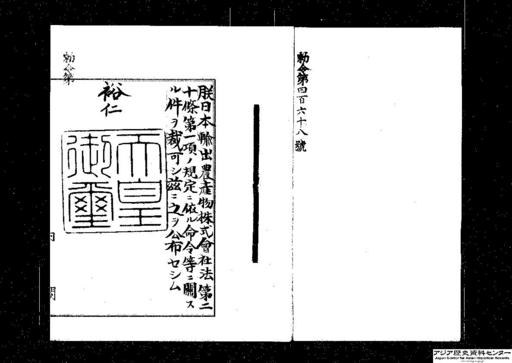 勅令第四百六十八號
朕日本輸出農産物株式會社法第二
十條第一項ノ規定ニ依ル命令等ニ關ス
ル件ヲ裁可シ茲ニ之ヲ公布セシム
裕仁
天皇
御璽
勅令第
内閣
アジア歴史資料センター
Japan Center for Asian Historical Records